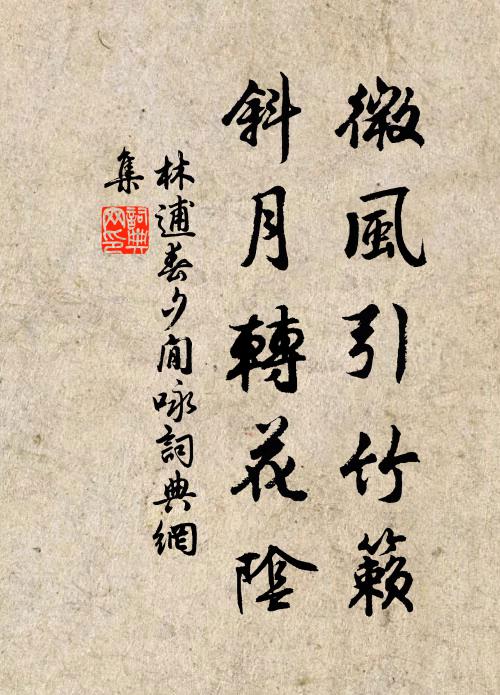 微風引竹籟
斜月轉花陰
林逋春夕閒咏詞典網
集
詞典
网印